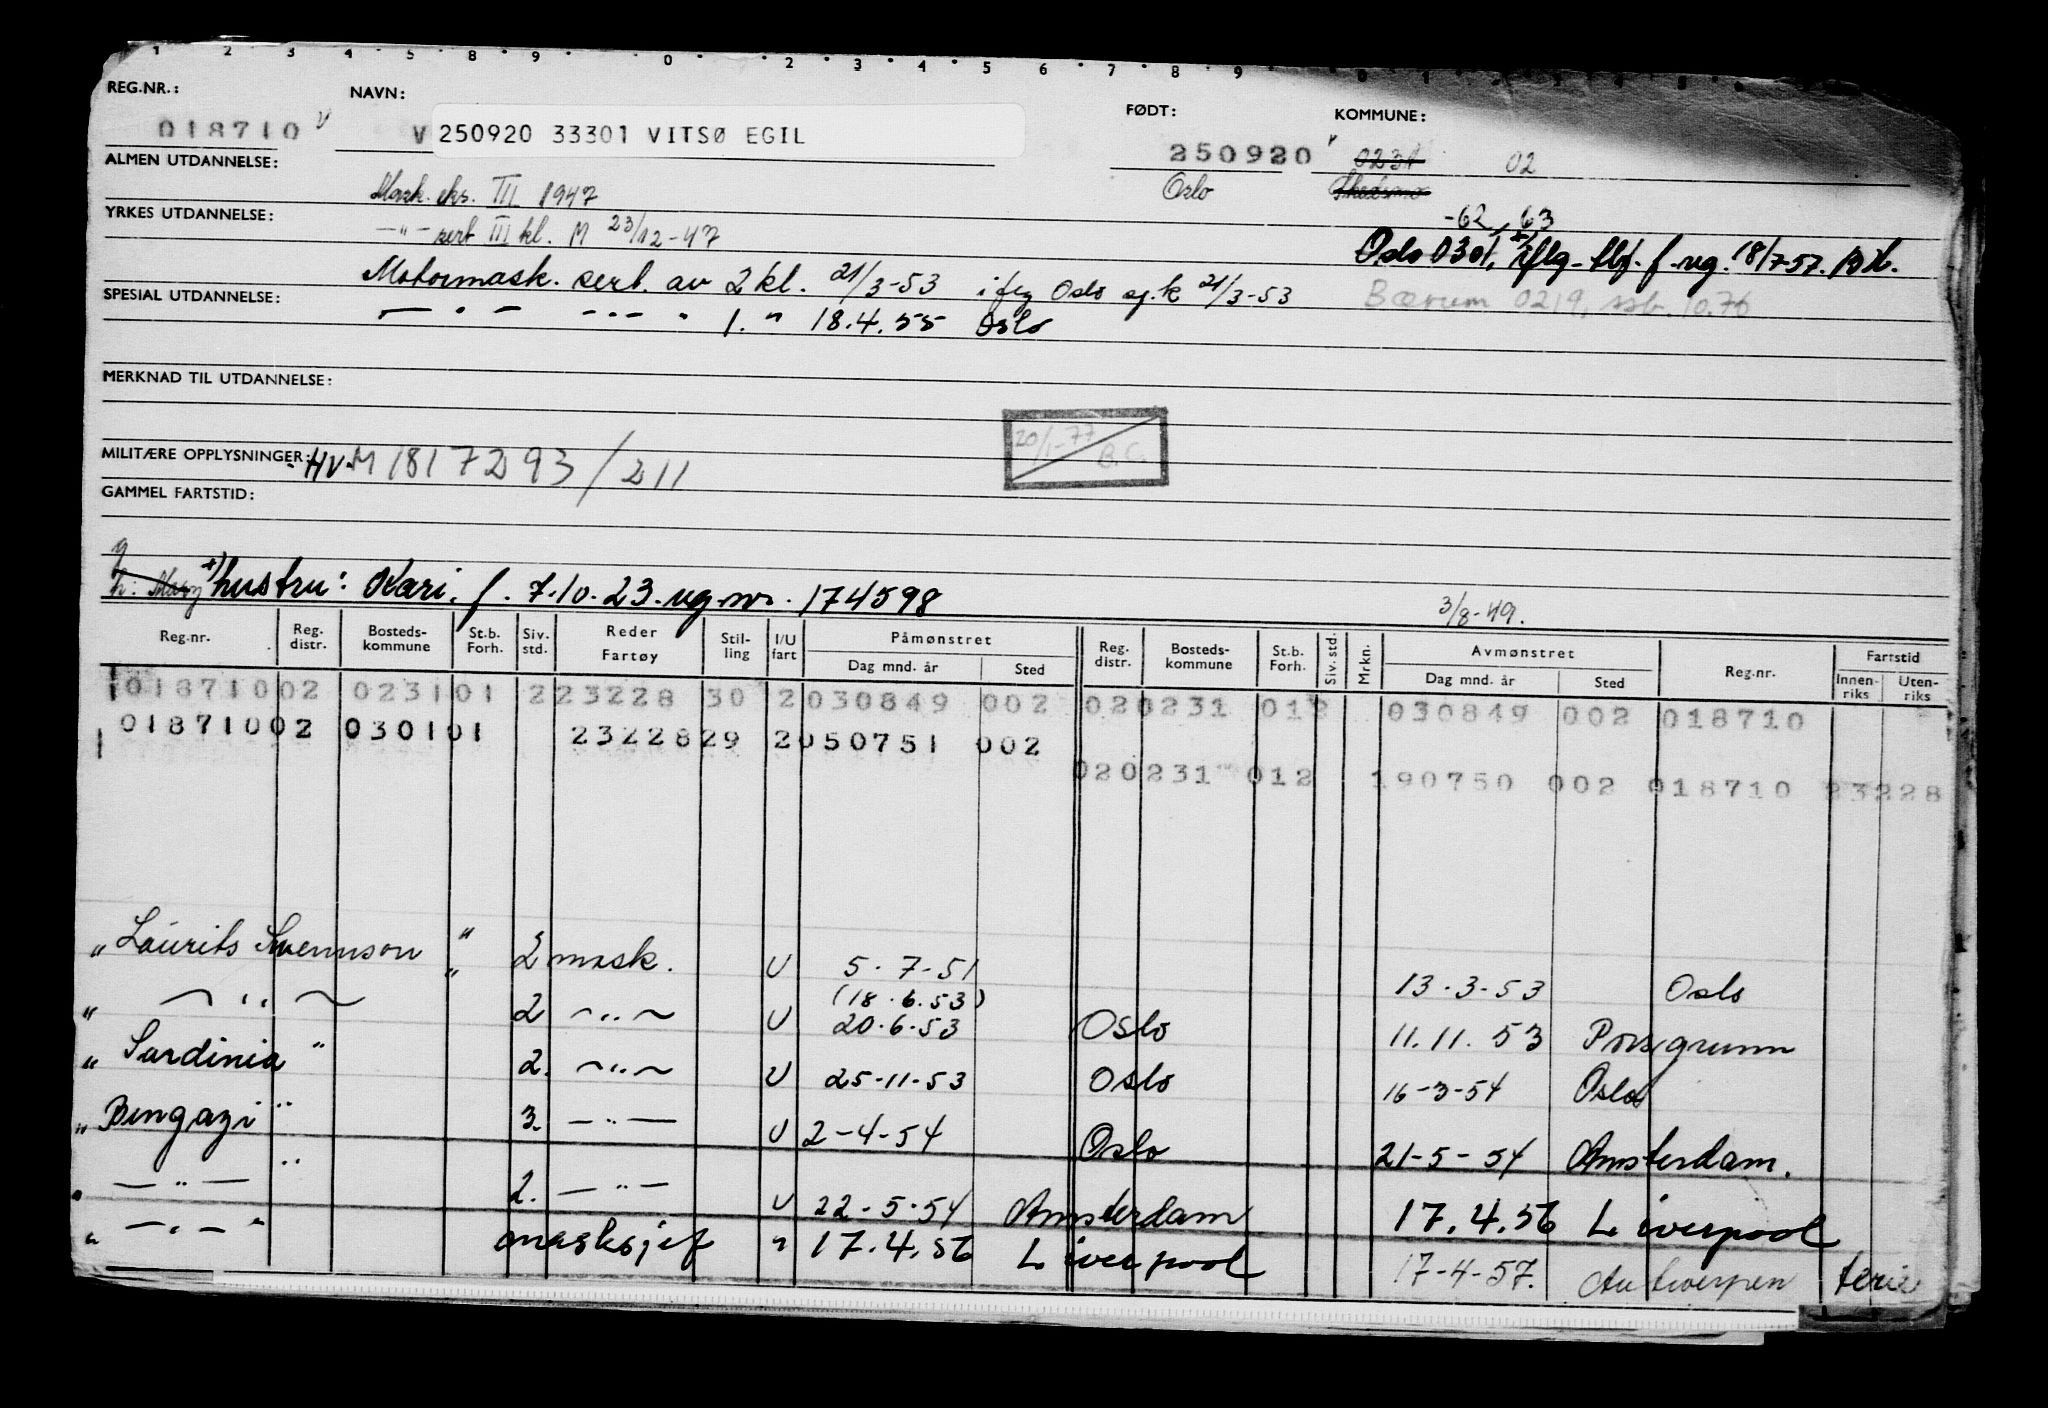 1 2 3 4 5 8 9 0 2 3 4 5 6 7 8 9 0 1
REG.NR.: NAVN: FØDT: KOMMUNE:
018710 V V 250920 33301 VITSØ EGIL 250920 0231 02
ALMEN UTDANNELSE: Mask. eks. III 1947 Oslo Skedsmo
YRKES UTDANNELSE: —"— sert III kl. M 23/12-47 -62, 63
Oslo 0301, f. ug. 18/7-57.
Motormask. sert. av 2 kl. 21/3-53 Oslo sj.k 21/3-53
SPESIAL UTDANNELSE: — " — — " — " 1. " 18.4.55 Oslo Bærum 0219, ssb. 10.76
MERKNAD TIL UTDANNELSE:
20/1-77 B.C.
MILITÆRE OPPLYSNINGER: HV. M 1817293/211
GAMMEL FARTSTID:
g
h: Mary x) hustru: Kari. f. 7.10.23. ug. nr. 174598 3/8-49.
Reg.nr. Reg. distr. Bosteds- kommune St.b. Forh. Siv. std. Reder Fartøy Stil- ling I/U fart Påmønstret Dag mnd. år Sted Reg. distr. Bosteds- kommune St.b. Forh. Siv. std. Mrkn. Avmønstret Dag mnd. år Sted Reg.nr. Fartstid Innen- riks Uten- riks
018710 02 0231 01 2 23228 30 2 030849 002 02 0231 01 2 030849 002 018710
018710 02 0301 01 23228 29 2 050751 002
02 0231 01 2 190750 002 018710 23228
" Laurits Swennson " 2 mask. U 5.7-51 13.3-53 Oslo
" — " — " 2 — " — U (18.6.53) 20.6.53 Oslo 11.11.53 Porsgrunn
" Sardinia " 2. — " — U 25-11-53 Oslo 16-3-54 Oslo
" Bengazi " 3. — " — U 2-4-54 Oslo 21-5-54 Amsterdam.
" — " — " 2. — " — U 22-5-54 Amsterdam 17.4.56 Liverpool
" — " — " masksjef " 17.4.56 Liverpool 17-4-57. Antwerpen ferie